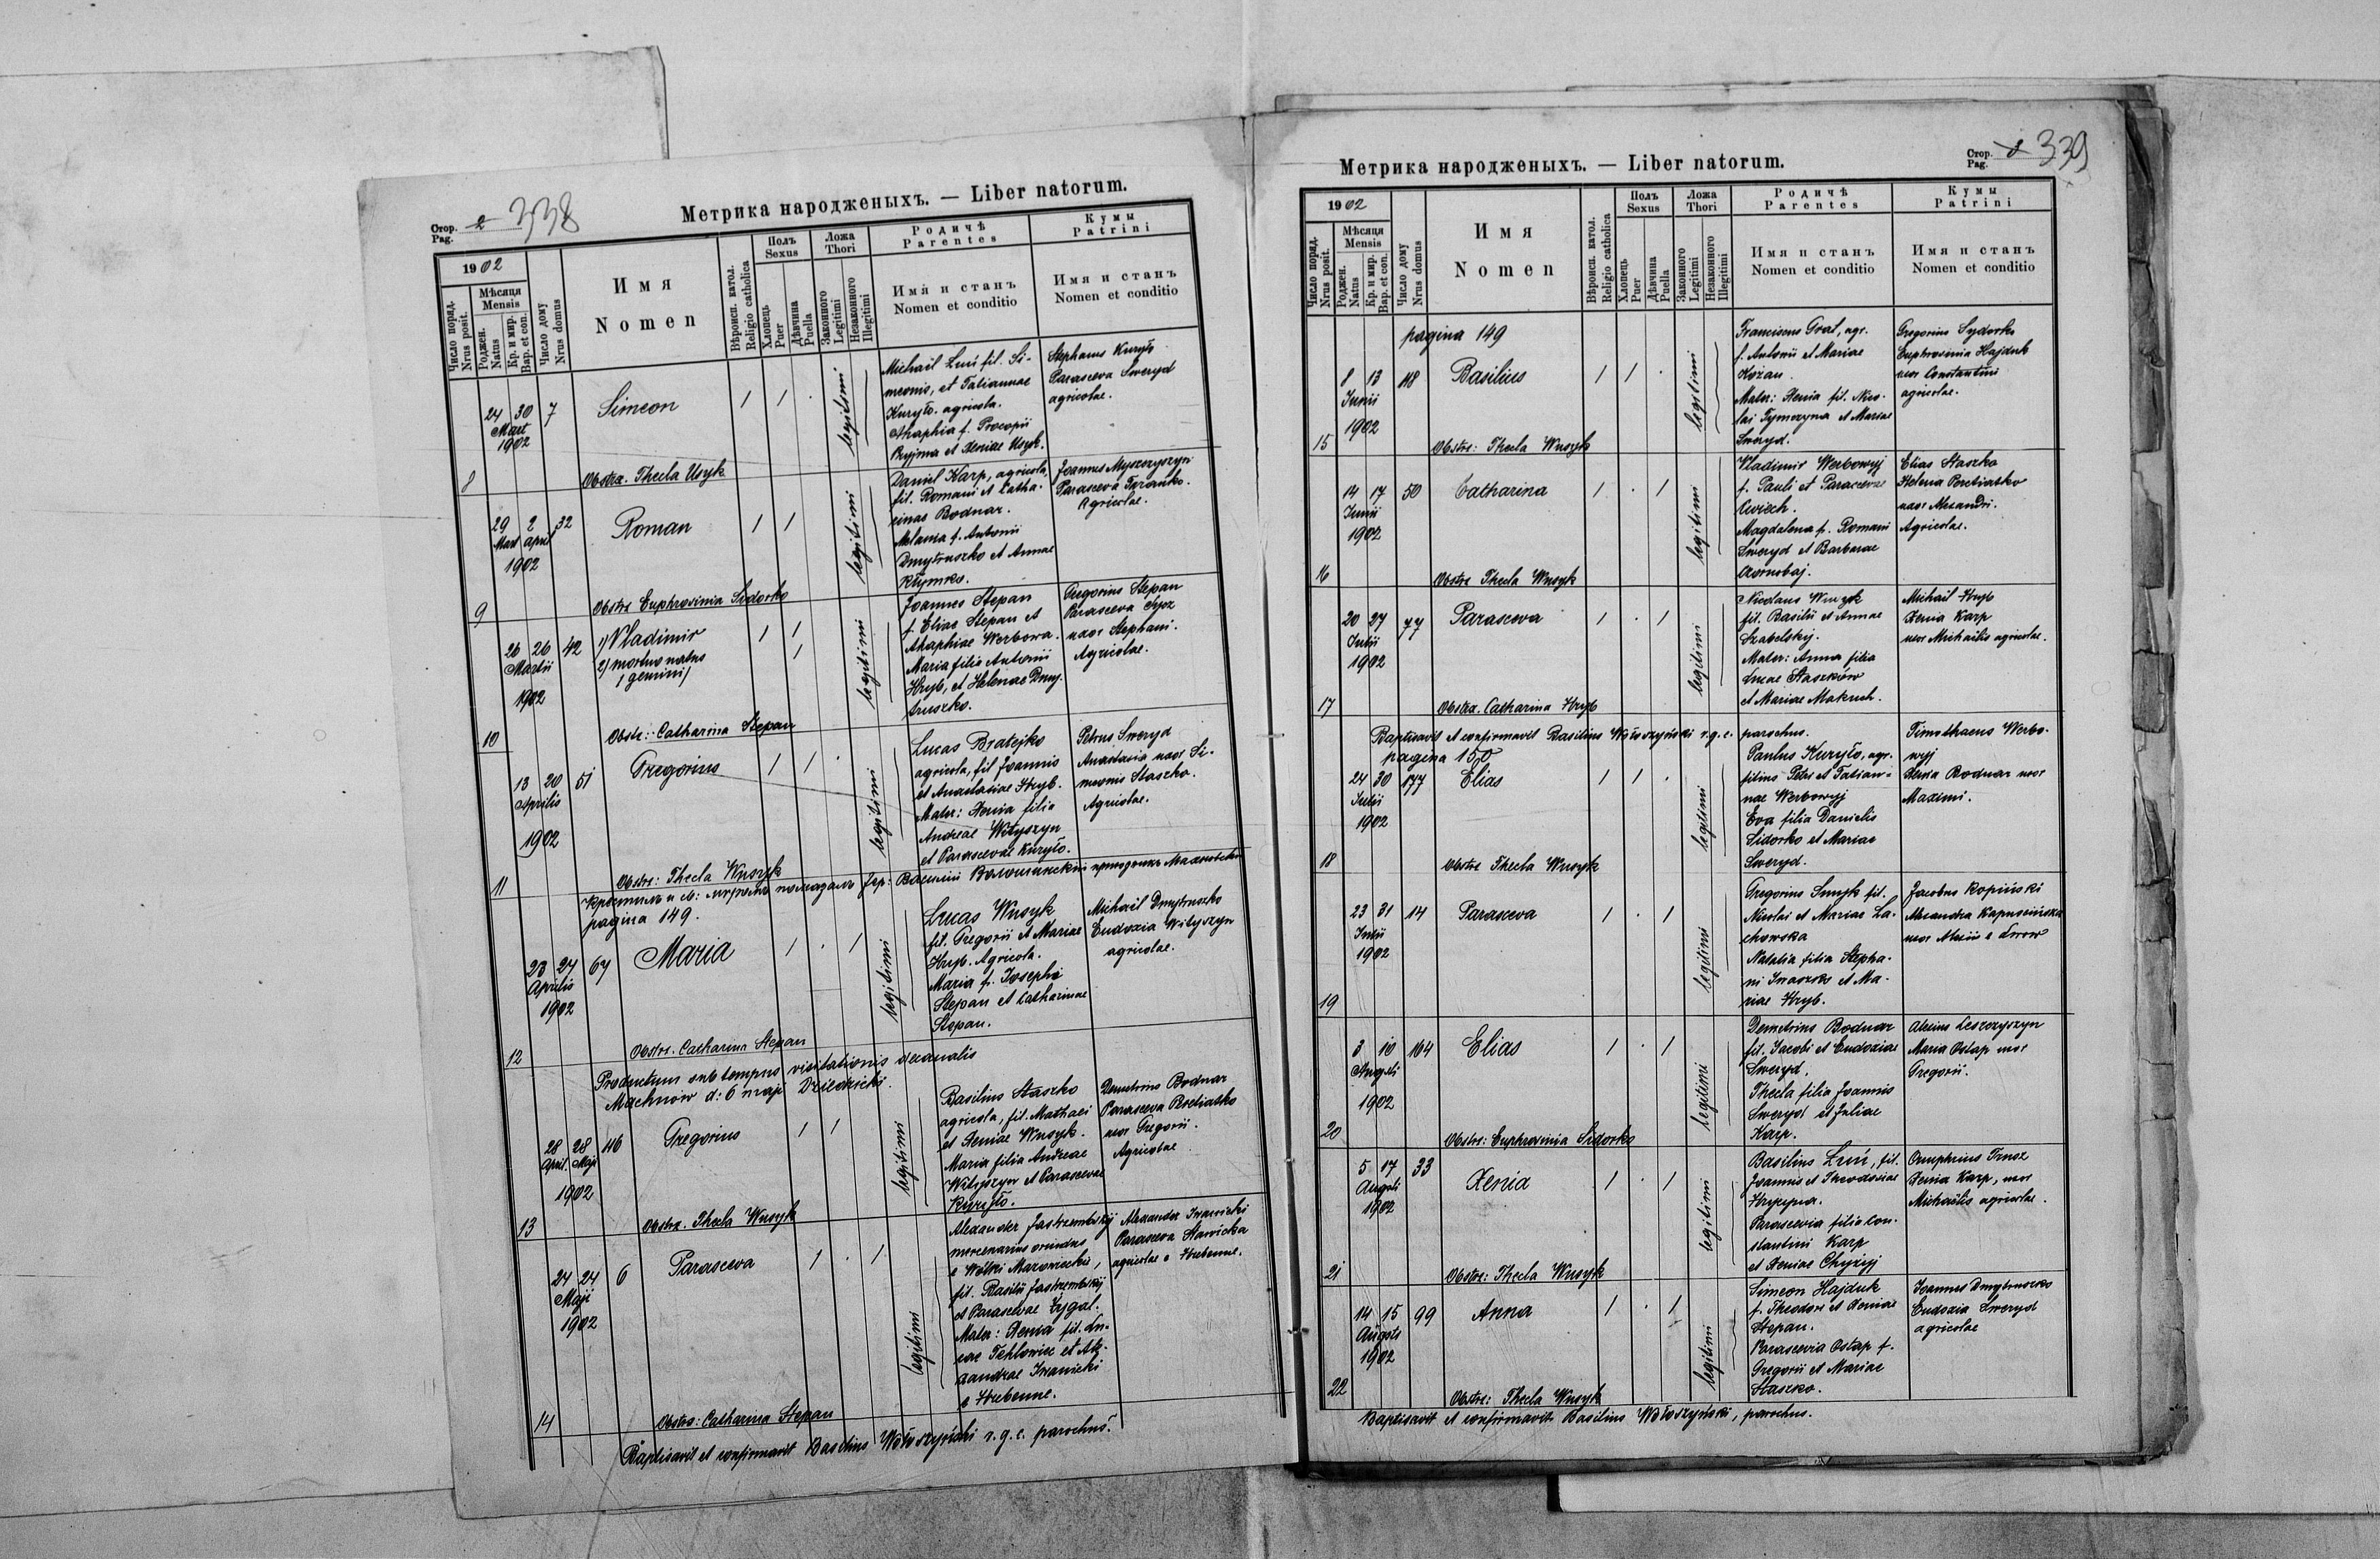 Стор.
Pag. 2 338
Метрика народженыхъ. — Liber natorum.
1902
Число поряд.
Nrus posit.
Мѣсяця
Mensis
Роджен.
Natus
Кр. и мир.
Bap. et con.
Число дому
Nrus domus
Имя
Nomen
Вѣроисп. катол.
Religio catholica
Полъ
Sexus
Хлопець
Puer
Дѣвчина
Puella
Ложа
Thori
Законного
Legitimi
Незаконного
Illegitimi
Родичѣ
Parentes
Имя и станъ
Nomen et conditio
Кумы
Patrini
Имя и станъ
Nomen et conditio
8
24 30 7
Mart
1902
Simeon
1 1 ·
legitimi
Michail Luń fil. Si-
meonis, et Tatiannae
Kuryło. agricola.
Ahaphia f. Procopii
Pryjma et Xeniae Usyk.
Stephanus Kuryło
Parasceva Sweryd
agricolae.
Obstr. Thecla Usyk
9
29 2 32
Mart April
1902
Roman
1 1
legitimi
Daniel Karp, agricola,
fil. Romani et Catha-
rinae Bodnar.
Melania f. Antonii
Dmytruszko et Annae
Klymko.
Joannes Myszczyszyn
Parasceva
Agricolae.
Obstr Euphrosinia Sidorko
10
26 26 42
Martii
1902
1) Vladimir
2) mortuo natus
/gemini/
1 1
1
legitimi
Joannes Stepan
f. Elias Stepan et
Ahaphiae Werbowa.
Maria filia Antonii
Hryb, et Helenae Dmy-
truszko.
Gregorius Stepan
Parasceva
uxor Stephani.
Agricolae.
Obstr: Catharina Stepan
11
13 20 51
Aprilis
1902
Gregorius
1 1 ·
legitimi
Lucas Bratejko
agricola, fil Joannis
et Anastasiae Hryb.
Mater: Xenia filia
Andreae Wityszyn
et Parascevae Kuryło.
Petrus Sweryd
Anastasia uxor Si-
meonis Staszko.
Agricolae.
Obstr: Thecla Wusyk
Крестилъ и св: миромъ помазалъ Іер: Василій Волошинскій приходникъ
pagina 149.
12
23 27 67
Aprilis
1902
Maria
1 · 1
legitimi
Lucas Wusyk
fil. Gregorii et Mariae
Hryb. Agricola.
Maria f. Josephi
Stepan et Catharinae
Stepan.
Michail Dmytruszko
Eudoxia Wityszyn
agricolae.
Obstr. Catharina Stepan
Productum sub tempus visitationis decanalis
Machnow d: 6 maji Dziedzicki.
13
28 28 46
April. Maji
1902
Gregorius
1 1
legitimi
Basilius Staszko
agricola, fil. Mathaei
et Xeniae Wusyk.
Maria filia Andreae
Wityszyn et Parascevae
Kuryło.
Demetrius Bodnar
Parasceva Bretiatko
uxor Gregorii.
Agricolae
Obstr. Thecla Wusyk
14
24 24 6
Maji
1902
Parasceva
1 · 1
legitimi
Alexander Jastrzembskij
mercenarius oriundus
e Wólki Mazowieckie,
fil. Basilii Jastrzembskij
et Parascevae Zygal.
Mater: Xenia fil. Lu-
cae Tehlowiec et Ale-
xandrae Iwanicki
e Hrebenne.
Alexander Iwanicki
Parasceva Stawicka
agricolae e Hrebenne.
Obstr: Catharina Stepan
Baptisavit et confirmavit Basilius Wołoszyński r.g.c. parochus.
Стор.
Pag. 339
Метрика народженыхъ. — Liber natorum.
1902
Число поряд.
Nrus posit.
Мѣсяця
Mensis
Роджен.
Natus
Кр. и мир.
Bap. et con.
Число дому
Nrus domus
Имя
Nomen
Вѣроисп. катол.
Religio catholica
Полъ
Sexus
Хлопець
Puer
Дѣвчина
Puella
Ложа
Thori
Законного
Legitimi
Незаконного
Illegitimi
Родичѣ
Parentes
Имя и станъ
Nomen et conditio
Кумы
Patrini
Имя и станъ
Nomen et conditio
pagina 149
15
8 13 118
Junii
1902
Basilius
1 1 ·
legitimi
Franciscus Grat, agr.
f. Antonii et Mariae
Kożan.
Mater: Xenia fil. Nico-
lai Tymczyna et Mariae
Sweryd.
Gregorius Sydorko
Euphrosinia Hajduk
uxor Constantini
agricolae.
Obstr: Thecla Wusyk
16
14 17 50
Junii
1902
Catharina
1 · 1
legitimi
Vladimir Werbowyj
f. Pauli et Parascevae
Magdalena f. Romani
Sweryd et Barbarae
Czornobaj.
Elias Staszko
Helena Bretiatko
uxor Alexandri.
Agricolae.
Obstr Thecla Wusyk
17
20 27 77
Julii
1902
Parasceva
1 · 1
legitimi
Nicolaus Wusyk
fil. Basilii et Annae
Szabelskij.
Mater: Anna filia
Lucae Staszków
et Mariae Makuch.
Michail Hryb
Xenia Karp
uxor Michailis agricolae.
Obstr. Catharina Hryb
Baptisavit et confirmavit Basilius Wołoszyński r.g.c. parochus.
pagina 150
18
24 30 177
Julii
1902
Elias
1 1 ·
legitimi
Paulus Kuryło, agr.
filius Petri et Tatian-
nae Werbowyj
Eva filia Danielis
Sidorko et Mariae
Sweryd.
Timothaeus Werbo-
wyj
Xenia Bodnar uxor
Maximi.
Obstr Thecla Wusyk
19
23 31 14
Julii
1902
Parasceva
1 · 1
legitimi
Gregorius Smyk fil.
Nicolai et Mariae La-
chowska
Natalia filia Stepha-
ni Iwaszko et Ma-
riae Hryb.
Jacobus Kopiński
Alexandra Kapuscińska
uxor Alexii e Lwow
20
3 10 164
Augsti
1902
Elias
1 · 1
legitimi
Demetrius Bodnar
fil. Jacobi et Eudoxiae
Sweryd.
Thecla filia Joannis
Sweryd et Juliae
Karp.
Alexius Leszczyszyn
Maria Ostap uxor
Gregorii.
Obstr: Euphrosinia Sidorko
21
5 17 33
Augsti
1902
Xenia
1 · 1
legitimi
Basilius Luń, fil.
Joannis et Theodosiae
Parascevia filia Con-
stantini Karp
et Xeniae Chyżyj
Onuphrius Trusz
Xenia Karp, uxor
Michaelis agricolae.
Obstr: Thecla Wusyk
22
14 15 99
Augsts
1902
Anna
1 · 1
legitimi
Simeon Hajduk
f. Theodori et Xeniae
Stepan.
Parascevia Ostap f.
Gregorii et Mariae
Staszko.
Joannes Dmytruszko
Eudoxia Sweryd
agricolae
Obstr: Thecla Wusyk
Baptisavit et confirmavit Basilius Wołoszyński, parochus.